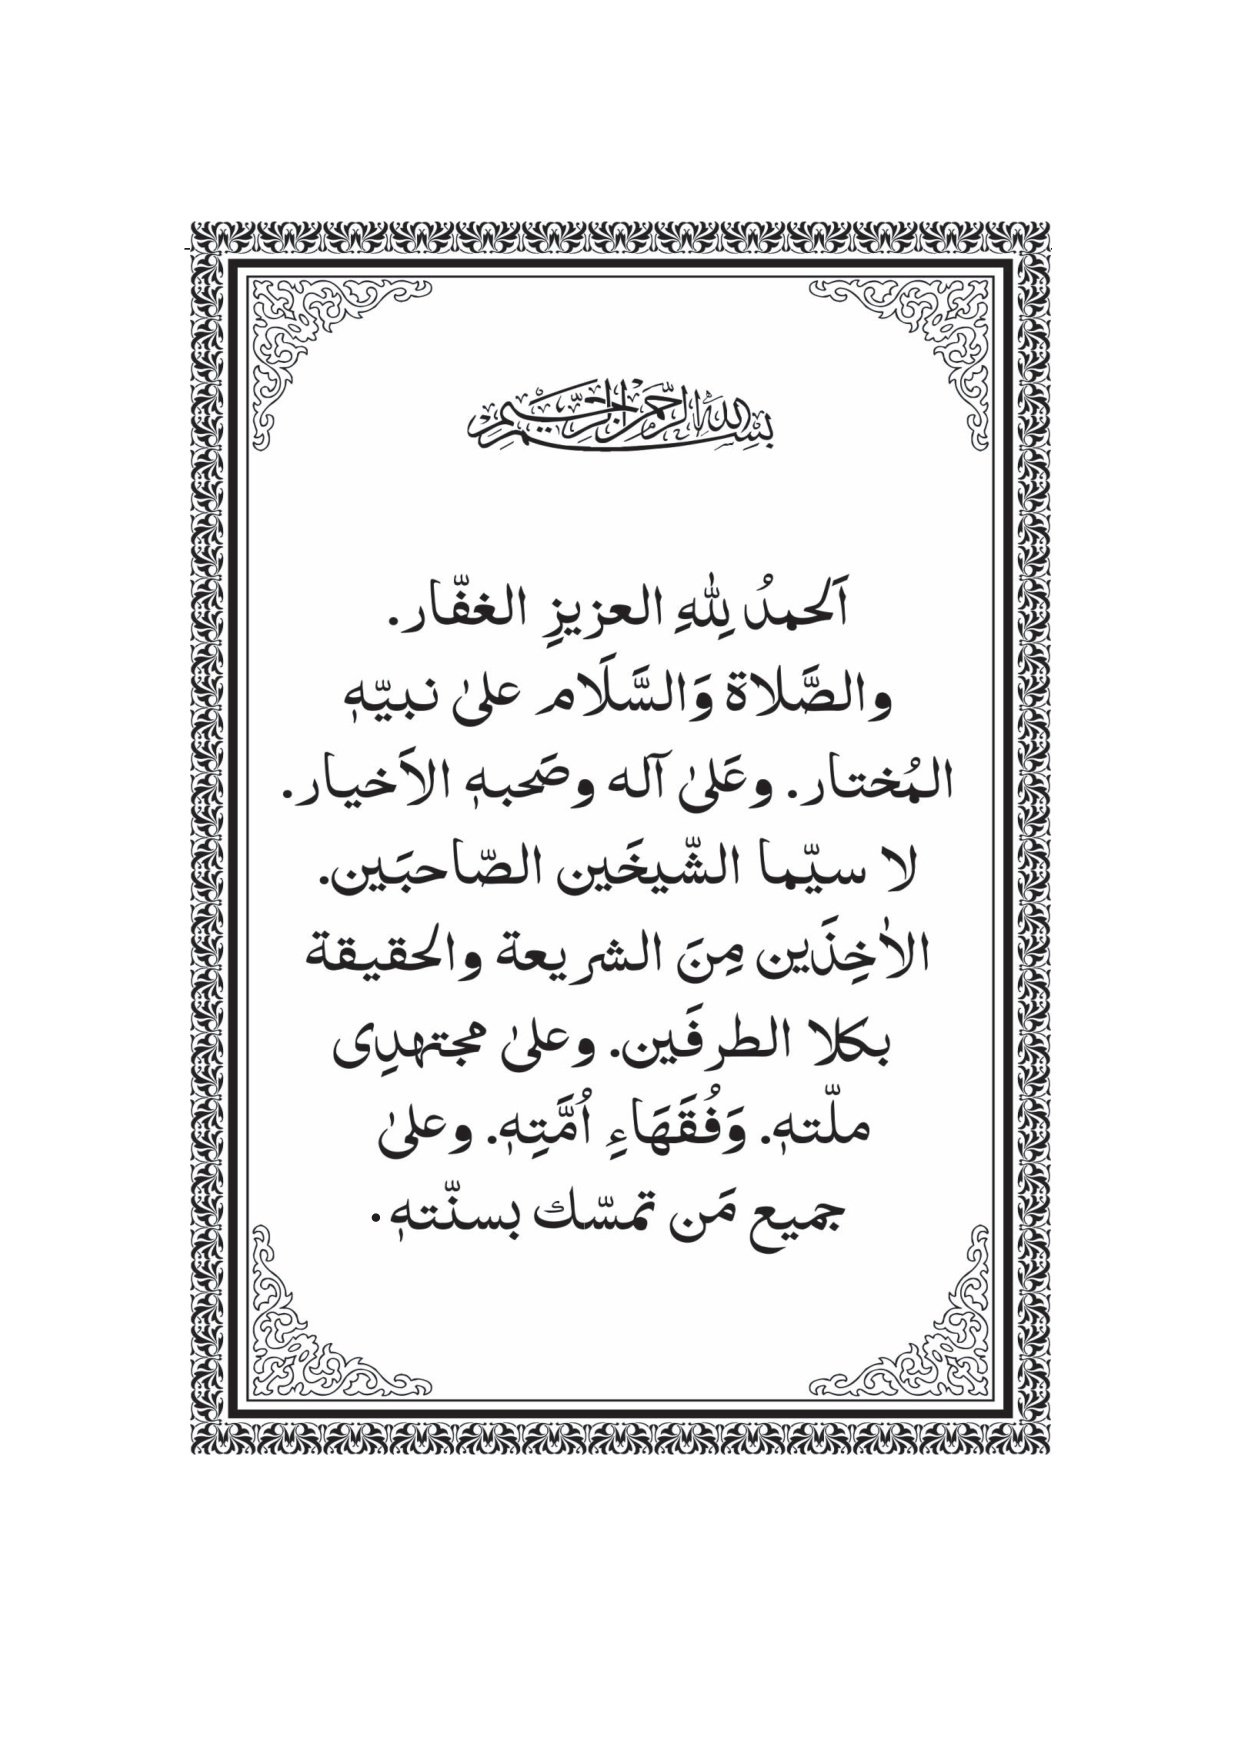 بسم الله الرحمن الرحيم
اَلحمدُ لِلّٰهِ العزيزِ الغفّار.
والصَّلاة وَالسَّلَام علىٰ نبيّهٖ
المُختار. وعَلىٰ آله وصَحبهٖ الاَخيار.
لا سيّما الشّيخَين الصّاحبَين.
الاٰخِذَين مِنَ الشريعة والحقيقة
بكلا الطرفَين. وعلىٰ مجتهدِى
ملّتهٖ. وَفُقَهَاءِ اُمَّتِهٖ. وعلىٰ
جميع مَن تمسّك بسنّتهٖ.